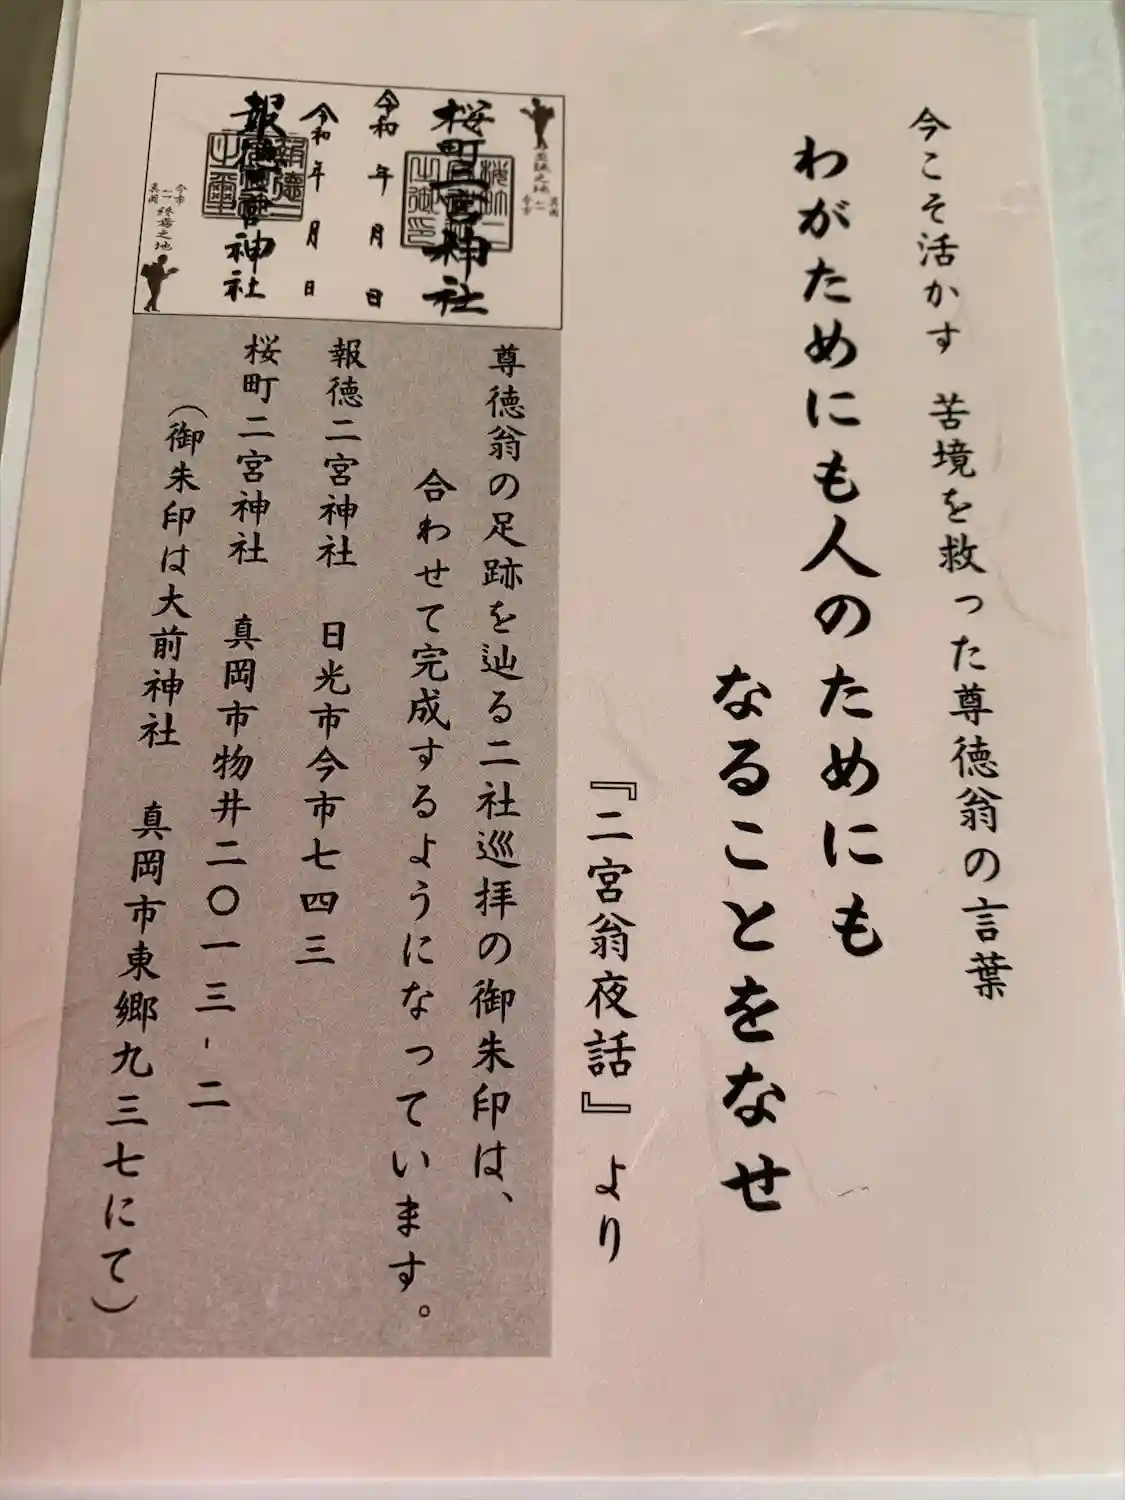 今こそ活かす 苦境を救った尊徳翁の言葉
わがためにも人のためにも
なることをなせ
『二宮翁夜話』より
桜町二宮神社
令和 年 月 日
令和 年 月 日
報徳二宮神社
真岡
今市
今市
真岡
終焉之地
尊徳翁の足跡を辿る二社巡拝の御朱印は、
合わせて完成するようになっています。
報徳二宮神社 日光市今市七四三
桜町二宮神社 真岡市物井二〇一三-二
(御朱印は大前神社 真岡市東郷九三七にて)